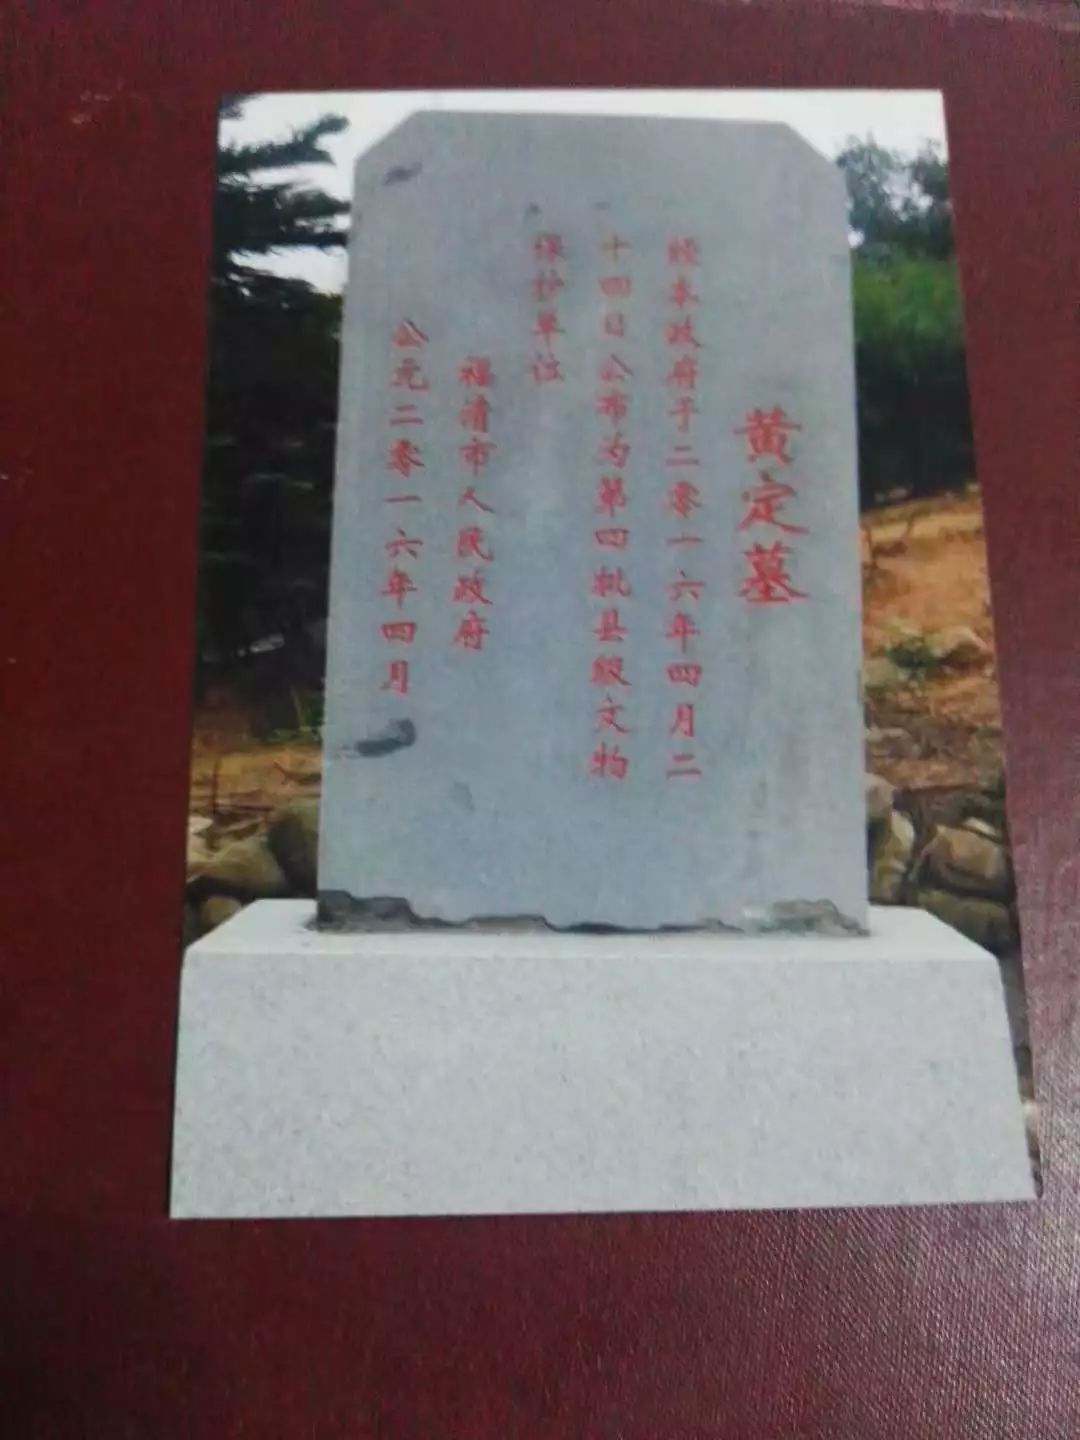 黄定墓
经本政府于二零一六年四月二
十四日公布为第四批县级文物
保护单位
福清市人民政府
公元二零一六年四月